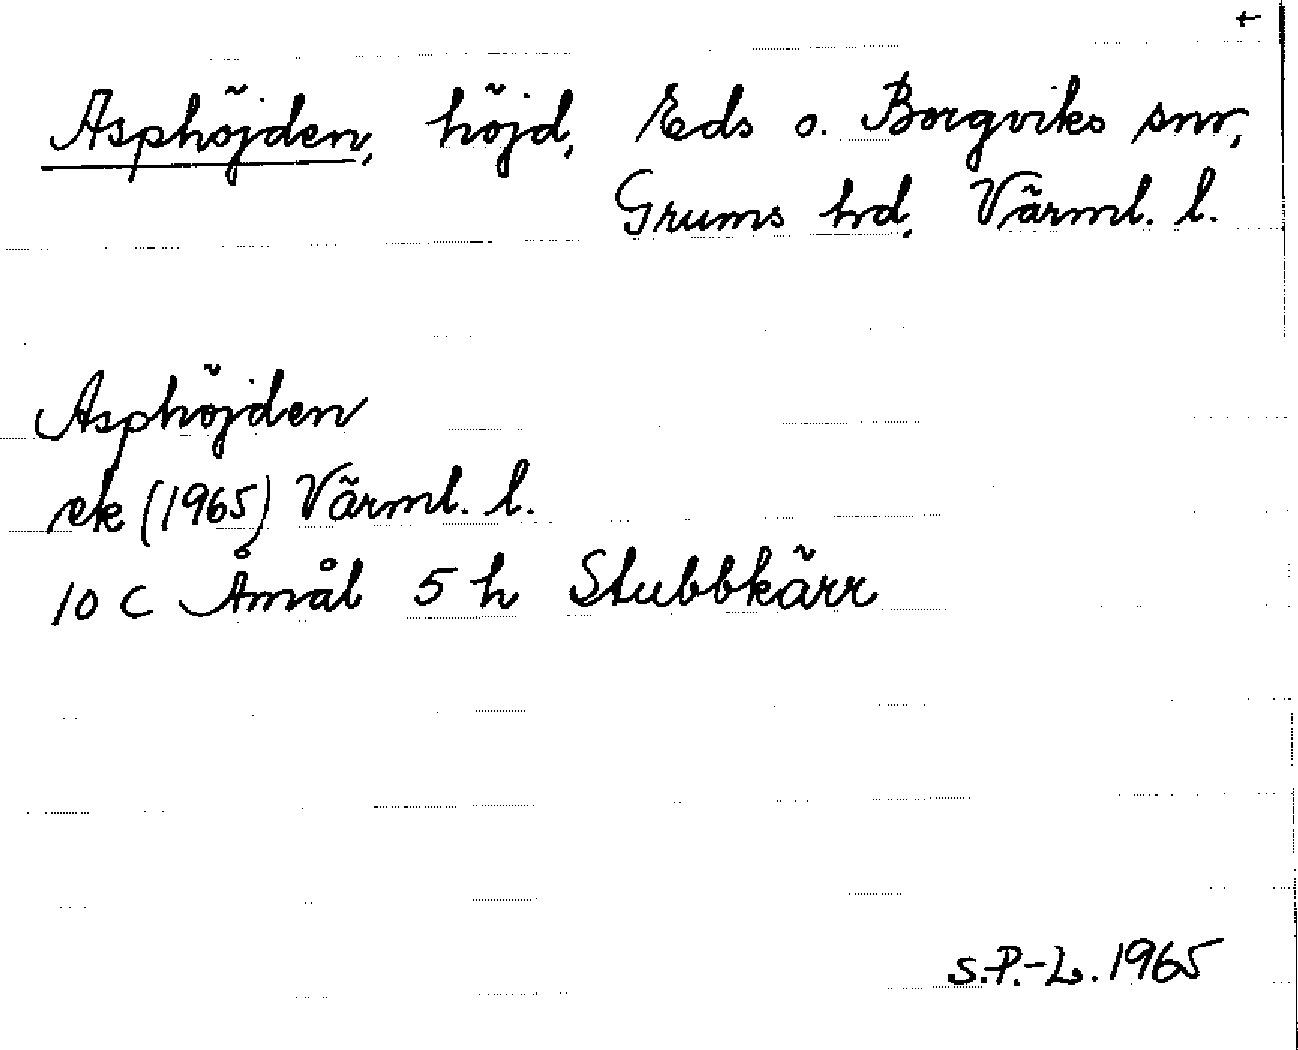 +
Asphöjden, höjd, Eds o. Borgviks snr,
Grums hd, Värml. l.
Asphöjden
ek (1965) Värml. l.
10 C Åmål 5 h Stubbkärr
S.P.-L. 1965